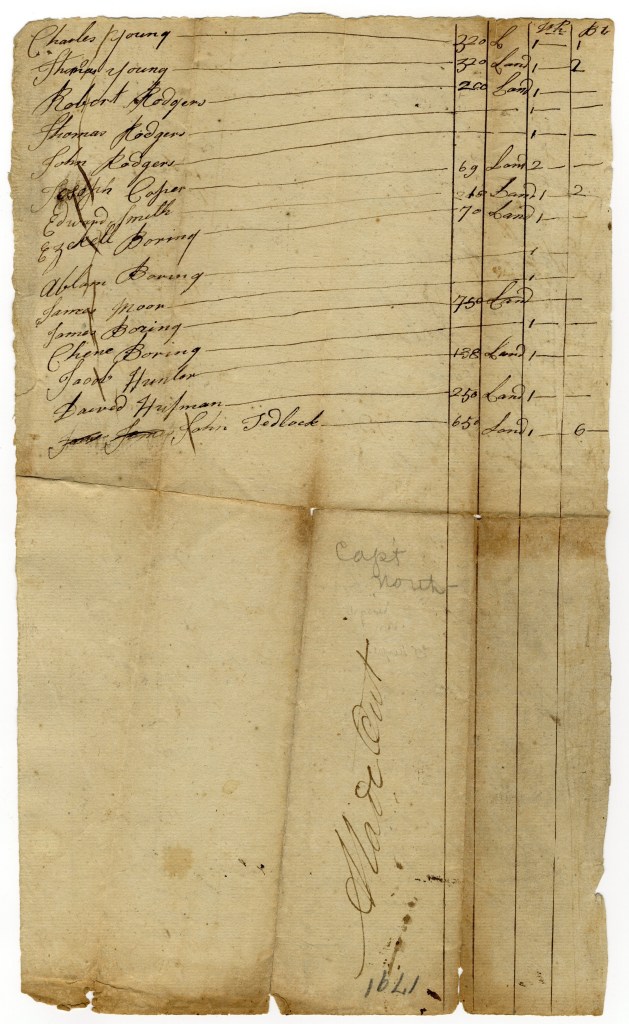 Wh Bl
Charles Young 320 L 1 — 1
Thomas Young 320 Land 1 — 2
Robert Rodgers 200 Land 1 — —
Thomas Rodgers 1 — —
John Rodgers 1 — —
Joseph Coper 69 Land 2 — —
Edward Smith 260 Land 1 2
Ezekell Boring 70 Land 1 — —
Ablam Boring 1
James Moor 1 —
James Boring 750 Land — —
Chene Boring 1 —
Jacob Hunter 138 Land 1 —
David 250 Land 1 — —
John Tedlock 650 Land 1 — 6 —
Capt
North
Made Out
1791